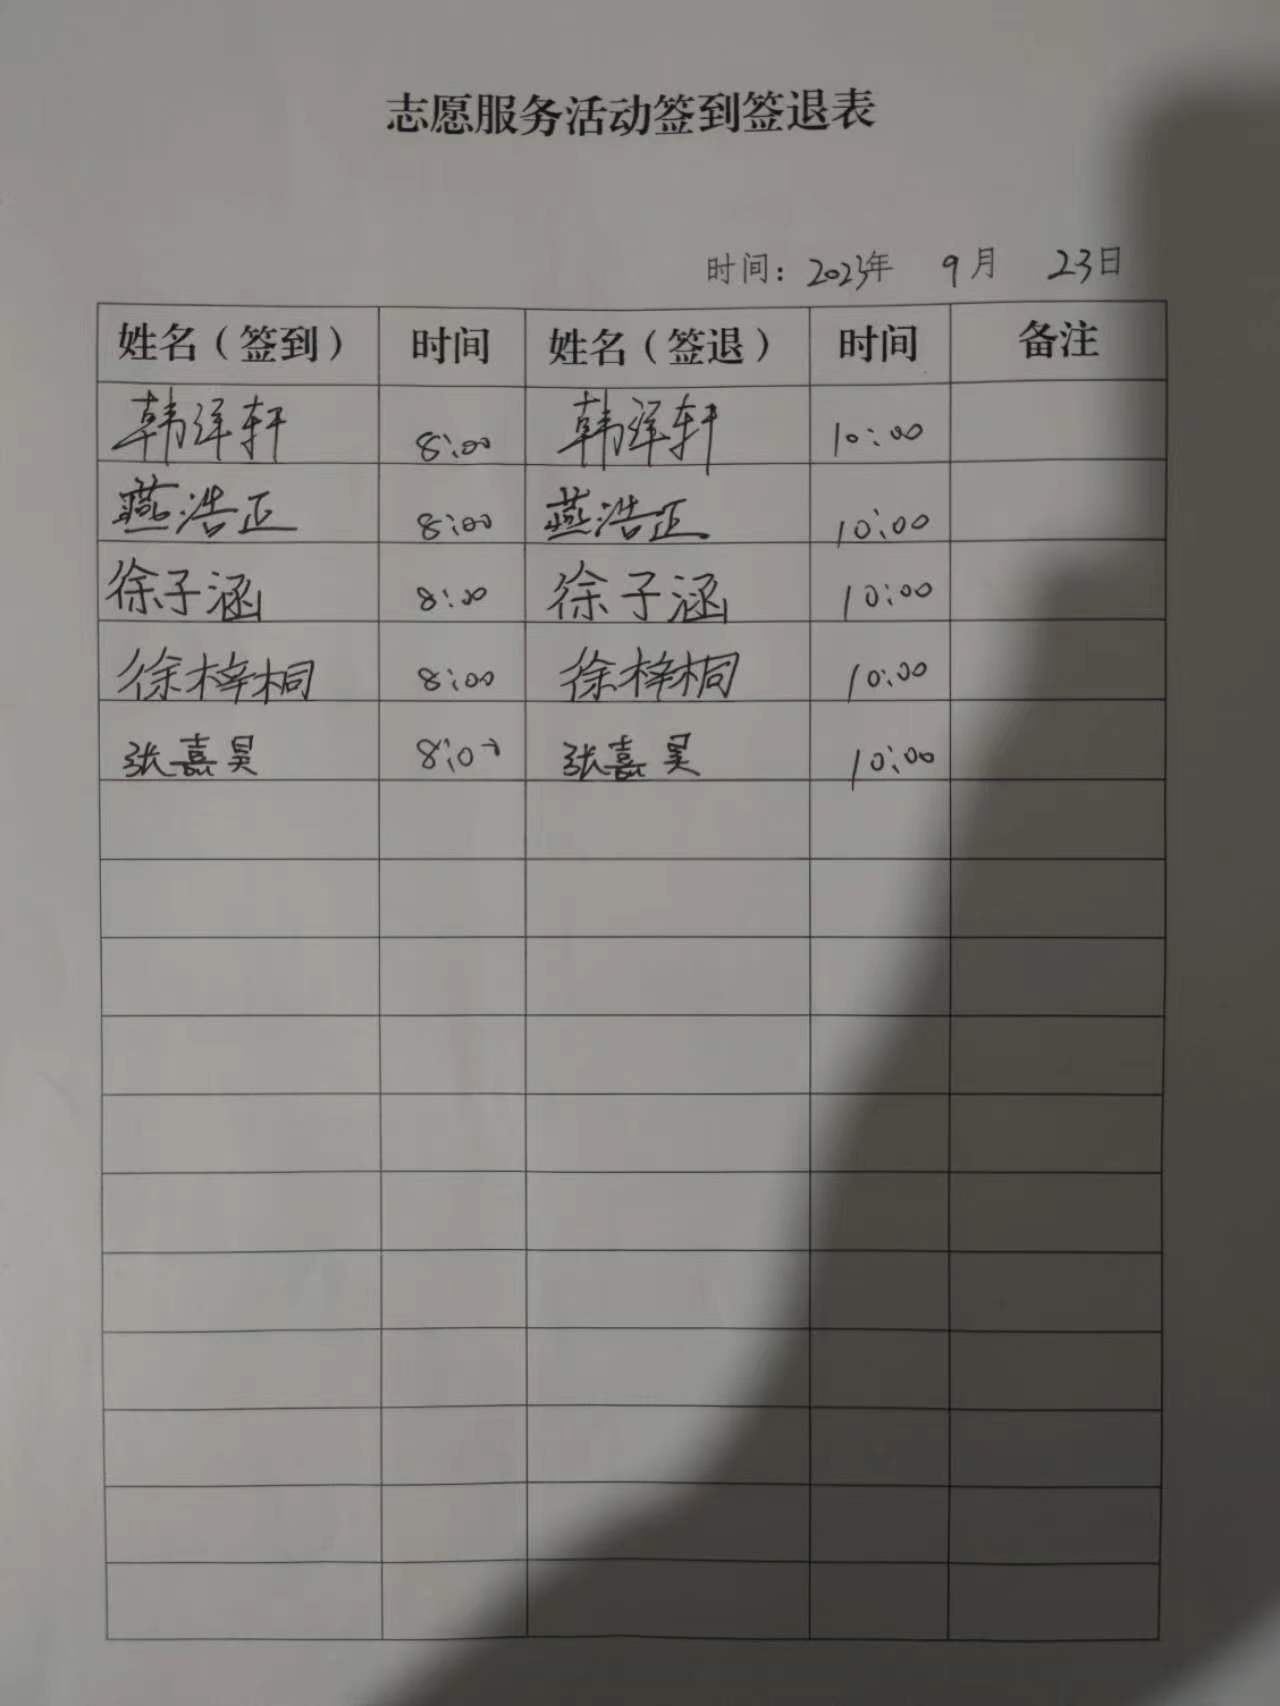 志愿服务活动签到签退表
时间：2023年 9月 23日
姓名（签到） 时间 姓名（签退） 时间 备注
韩洋轩 8:00 韩洋轩 10:00
燕浩正 8:00 燕浩正 10:00
徐子涵 8:00 徐子涵 10:00
徐梓桐 8:00 徐梓桐 10:00
张嘉昊 8:00 张嘉昊 10:00